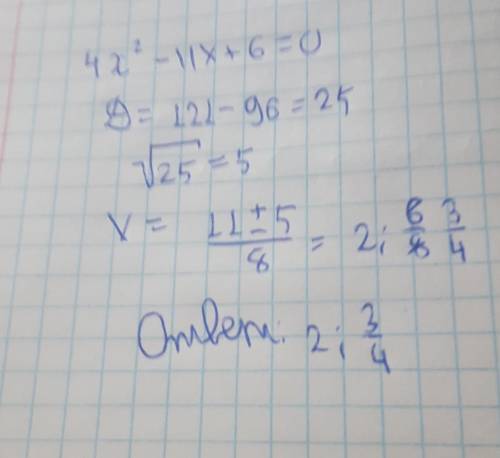 4x² - 11x + 6 = 0
D = 121 - 96 = 25
√25 = 5
x = (11 ± 5)/8 = 2; 6/8 3/4
Ответ: 2; 3/4